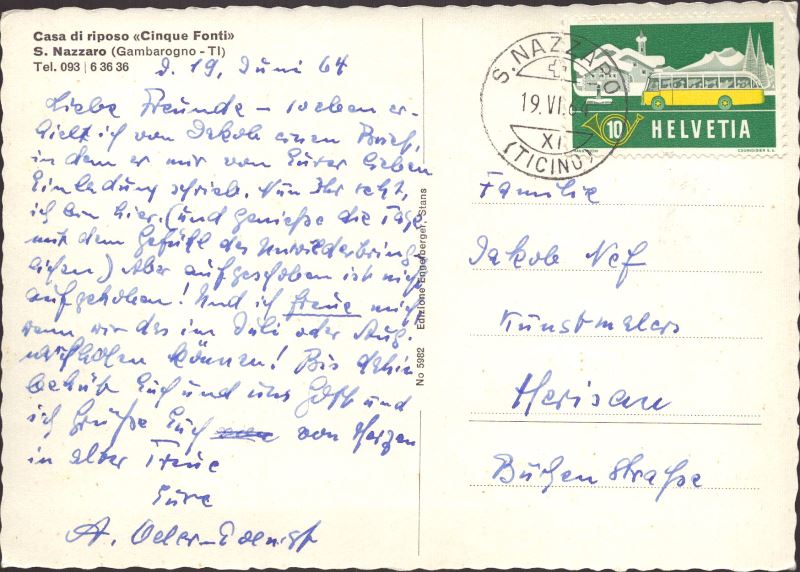 Casa di riposo «Cinque Fonti»
S. Nazzaro (Gambarogno - TI)
Tel. 093 | 6 36 36
d. 19. Juni 64
Liebe Freunde – soeben er-
hielt ich von Jakob einen Brief,
in dem er mir von Eurer lieben
Einladung schrieb. Nun Ihr seht,
ich bin hier. (und geniesse die Tage
mit dem Gefühl des Unwiderbring-
lichen) Aber aufgeschoben ist nicht
aufgehoben! Und ich freue mich
wenn wir das im Juli oder Aug.
nachholen können! Bis dahin
behüt Euch und uns Gott und
ich Grüsse Euch von Herzen
in alter Treue
Eure
A.
No 5982 Edizione Engelberger, Stans
S. NAZZARO
19.VI.64
XI
(TICINO)
10 HELVETIA
COURVOISIER S.A.
Familie
Jakob Nef
Kunstmalers
Herisau
Strasse